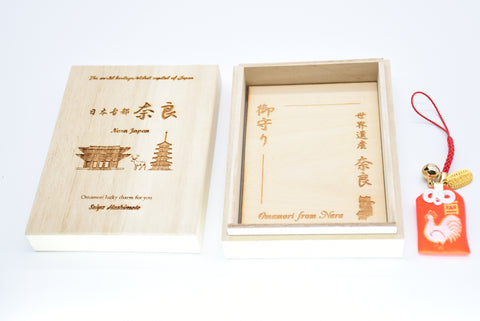 The world heritage oldest capital of Japan
日本古都 奈良
Nara Japan
Omamori lucky charm for you
Seiya Hashimoto
御守り
世界遺産 奈良
Omamori from Nara